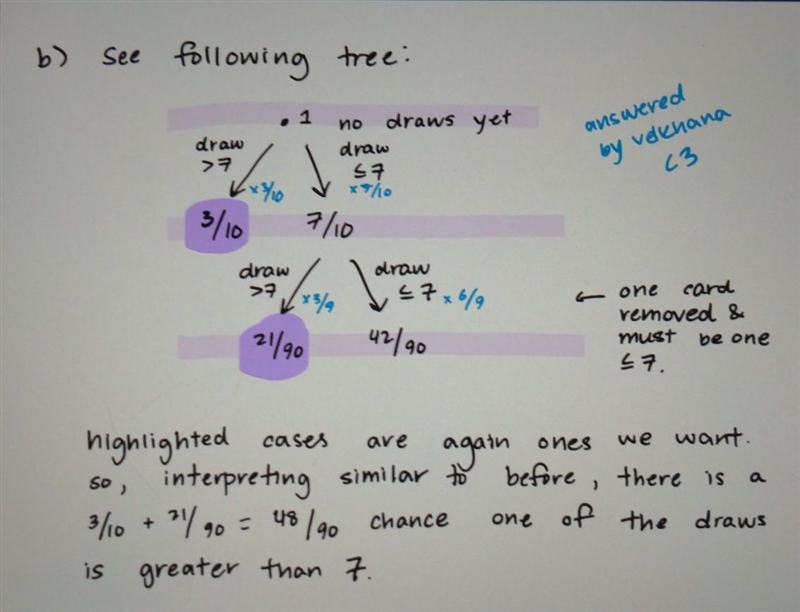 b) See following tree:
. 1 no draws yet
answered
by vdkhana
<3
draw
>7
draw
≤7
×3/10
×7/10
3/10 7/10
draw
>7
draw
≤7
×3/9
×6/9
← one card
removed &
must be one
≤7.
21/90 42/90
highlighted cases are again ones we want.
so, interpreting similar to before, there is a
3/10 + 21/90 = 48/90 chance one of the draws
is greater than 7.